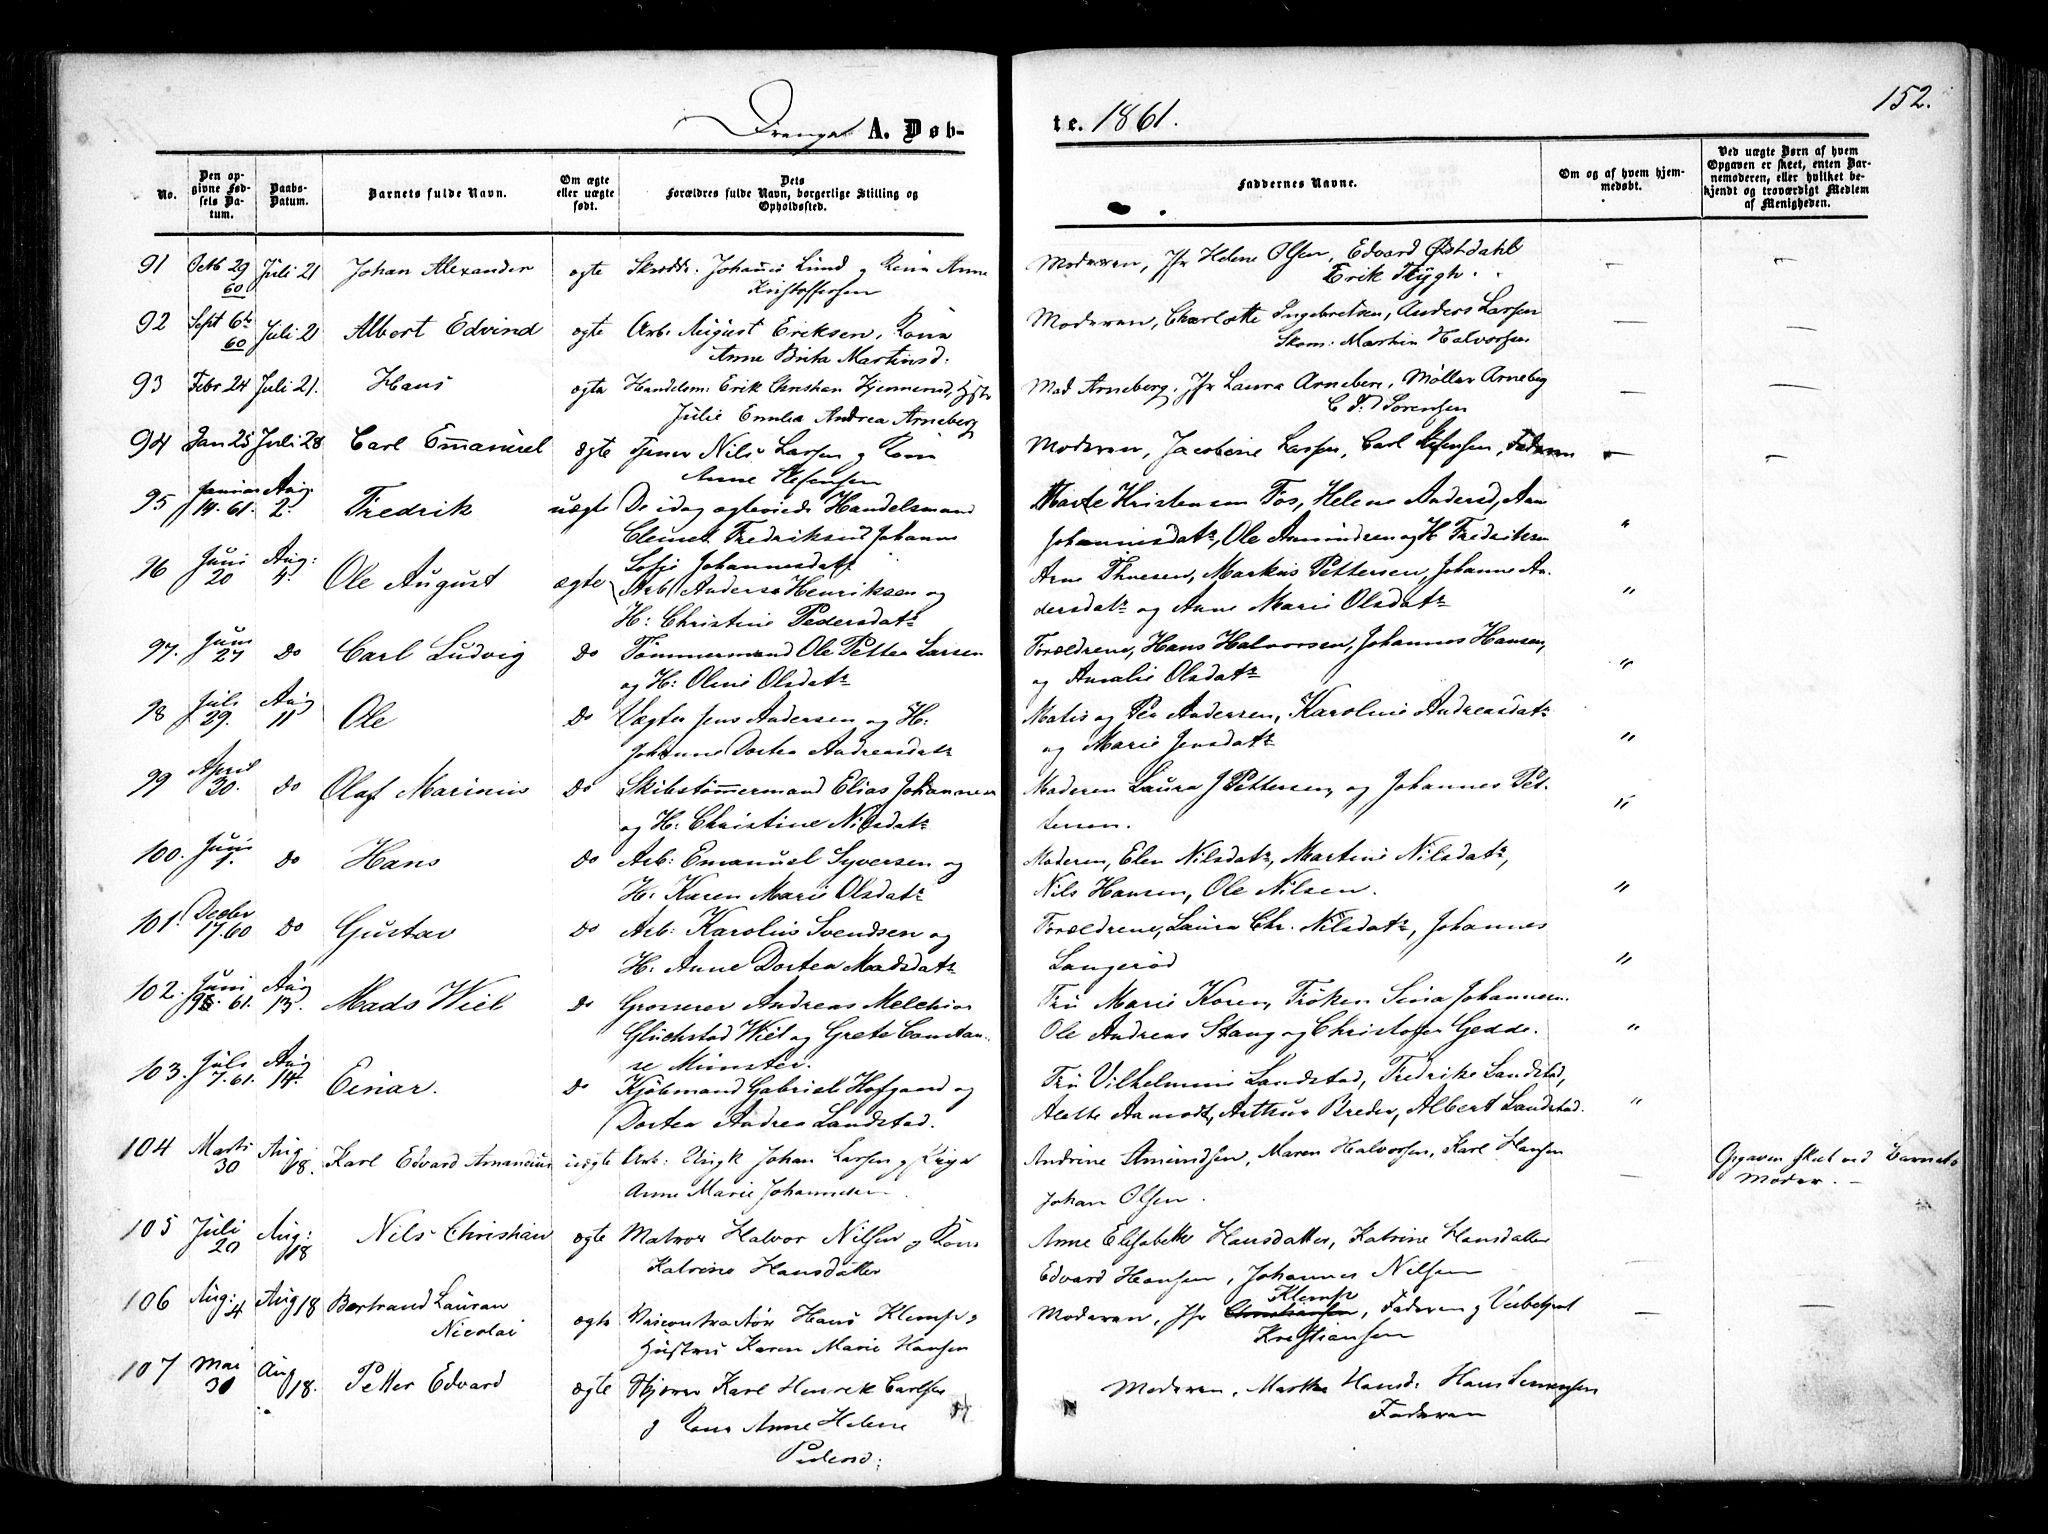 Drenge A. Døb-
te. 1861.
152.
No.
Den opgivne Fødsels Datum.
Daabs-Datum.
Barnets fulde Navn.
Om ægte eller uægte født.
Dets Forældres fulde Navn, borgerlige Stilling og Opholdssted.
Faddernes Navne.
Om og af hvem hjemmedøbt.
Ved uægte Børn af hvem Opgaven er skeet, enten Barnemoderen, eller hvilket bekjendt og troværdigt Medlem af Menigheden.
91 Octb 29 60 Juli 21 Johan Alexander ægte Skrædder Johannes Lund og Kone Anne Moderen, Jfr Helene Olsen, Edvard Østdahl — —
Kristoffersen Erik Trygh.
92 Sept 6te 60 Juli 21 Albert Edvind ægte Arb: August Eriksen, Kone Moderen, Charlotte Ingebretsen, Anders Larsen — —
Anne Brita Martinsd: Skom: Martin Halvorsen
93 Febr 24 Juli 21. Hans ægte Handelsm: Erik Christian Hjemmerud, Hustr Mad Arneberg, Jfr Laura Arneberg, Møller Arneberg — —
Julie Emilia Andrea Arneberg C. F. Sorensen
94 Jan 25 Juli 28 Carl Emanuel ægte Tjener Nils Larsen og Kone Moderen, Jacobine Larsen, Carl Stefensen, Faderen — —
Anne Stefensen
95 Januar 14. 61. Aug. 2. Fredrik uægte De idag ægteviede Handelsmand Marte Kristensen Fos, Helene Andersd, Ann "
Clemet Fredriksen Johanne Johannisdatr, Ole Amundsen og H Fredriksen
Lofise Johannesdatr
96 Juni 20 Aug: 4. Ole August ægte Arb. Anders Henriksen og Arne Thuesen, Markus Pettersen, Johanne An- "
H: Christine Pedersdatr dersdatr og Anne Marie Olsdatr
97. Juni 27 do Carl Ludvig do Tømmermand Ole Petter Larsen Forældrene, Hans Halvorsen, Johannes Hansen, "
og H: Oline Olsdatr og Amalie Olsdatr
98 Juli 29. Aug 11 Ole do Vægter Jens Andersen og H: Matis og Per Andersen, Karoline Andreasdatr "
Johanne Dortea Andreasdatr og Marie Jensdatr
99 April 30. do Olaf Marinius do Skibstømmermand Elias Johannesen Moderen Laura J Pettersen, og Johannes Pet- "
og H: Christine Nilsdatr tersen.
100. Juni 1. do Hans do Arb: Emanuel Syversen og Moderen, Elen Nilsdatr, Martine Nilsdatr, "
H: Karen Marie Olsdatr Nils Hansen, Ole Nilsen.
101. Decbr 17. 60 do Gustav do Arb: Karolius Svendsen og Forældrene, Laura Chr. Nilsdatr, Johannes "
H: Anne Dortea Madsdatr Langerød
102. Juni 61. Aug 13. Mads Wiel do Grosserer Andreas Melchior Fru Marie Koren, Frøken Sina Johannesen. "
Glückstad Wiel og Grete Constan- Ole Andreas Stang og Christofer Gedde.
se Münster.
103. Juli 7. 61. Aug 14. Einar. do Kjøbmand Gabriel Hofgaard og Fru Vilhelmine Landstad, Fredrike Landstad, "
Dortea Andrea Landstad. Alette Aamodt, Arthur Breder, Albert Landstad.
104 Marts 30 Aug 18. Karl Edvard Amandius uægte Arb: Ungk Johan Larsen og Pige Andrine Amundsen, Maren Halvorsen, Karl Hansen — Opgaven skeet ved Barnets
Anne Marie Johannesen Johan Olsen. Moder. —
105 Juli 20 Aug: 18 Nils Christian ægte Matros Halvor Nilsen og Kone Anne Elisabeth Hansdatter, Katrine Hansdatter
Katrine Hansdatter Edvard Hansen, Johannes Nilsen
106 Aug: 4 Aug 18 Bertrand Lauran ægte Havecontractør Hans Klemp og Moderen, Jfr Christiansen Klemp, Faderen og — —
Nicolai Hustru Karen Marie Hansen Kristiansen
107 Mai 30 Aug 18. Petter Edvard ægte Karl Henrik Carlsen Moderen, Marthe Hansd: Hans
og Kone Anne Helene Faderen
Pedersd: